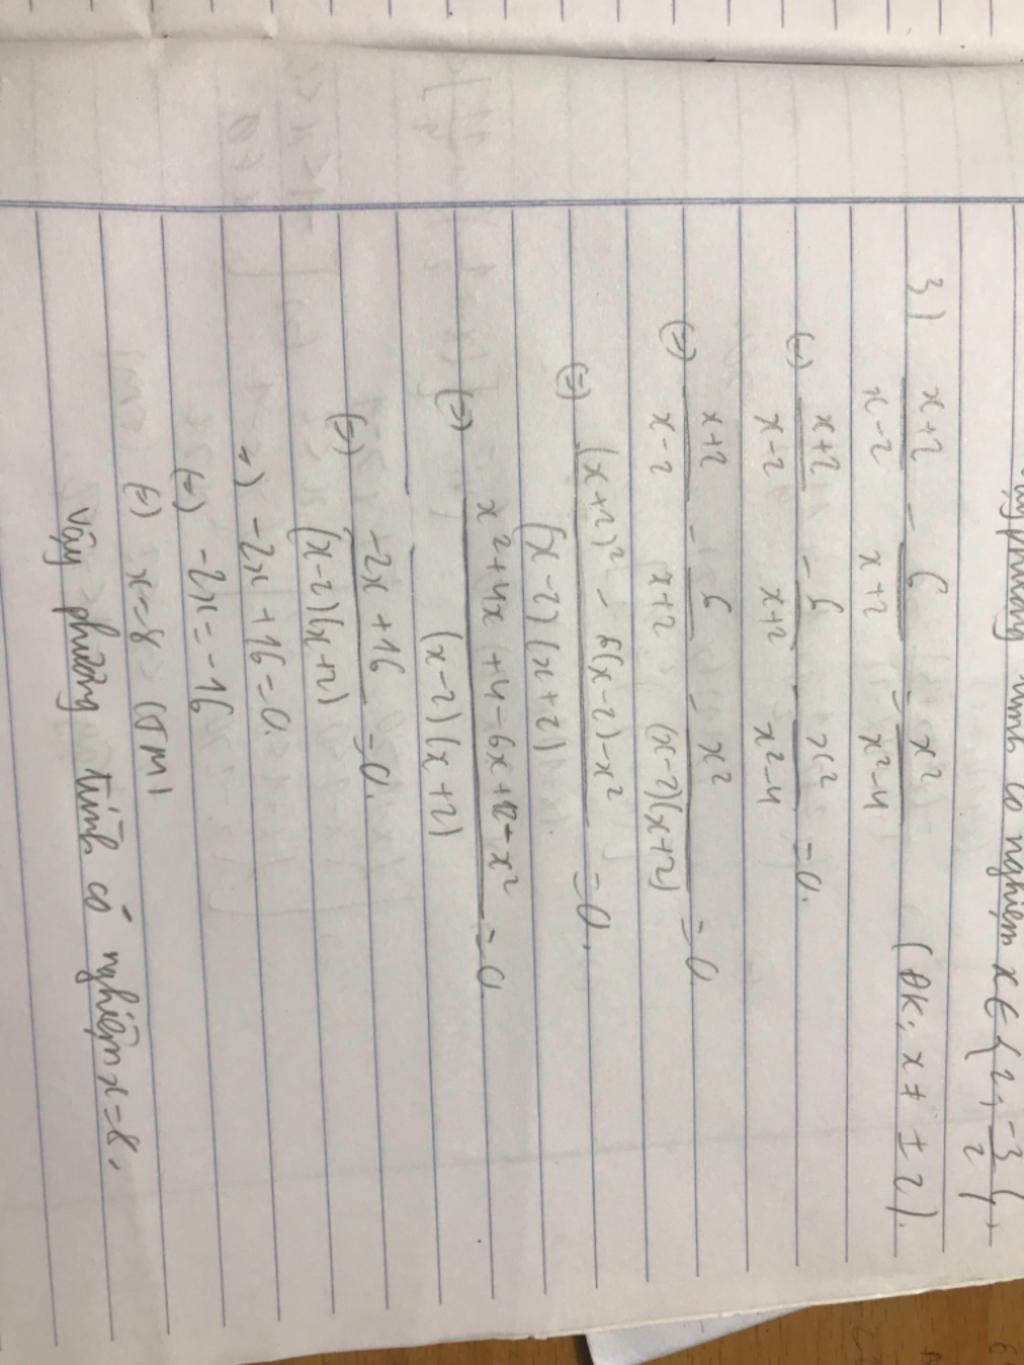 phương trình có nghiệm x ∈ {2; -3/2}.
3) (x+2)/(x-2) - 6/(x+2) = x²/(x²-4) (ĐK: x ≠ ±2).
(=) (x+2)/(x-2) - 6/(x+2) - x²/(x²-4) = 0.
(=) (x+2)/(x-2) - 6/(x+2) - x²/((x-2)(x+2)) = 0
(=) ((x+2)² - 6(x-2) - x²)/((x-2)(x+2)) = 0.
(=) (x²+4x+4-6x+12-x²)/((x-2)(x+2)) = 0.
(=) (-2x+16)/((x-2)(x+2)) = 0.
=) -2x+16=0.
(=) -2x=-16
(=) x=8 (TM)
Vậy phương trình có nghiệm x=8.